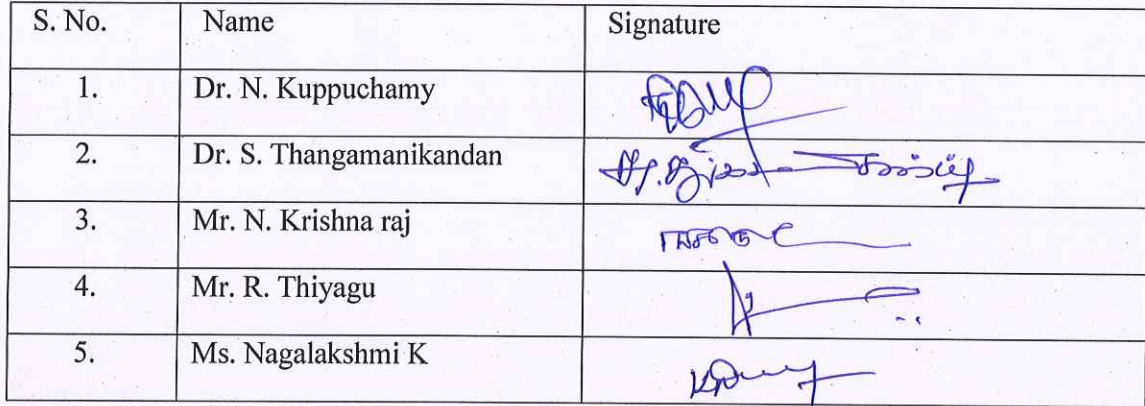 S. No. Name Signature
1. Dr. N. Kuppuchamy
2. Dr. S. Thangamanikandan
3. Mr. N. Krishna raj
4. Mr. R. Thiyagu
5. Ms. Nagalakshmi K